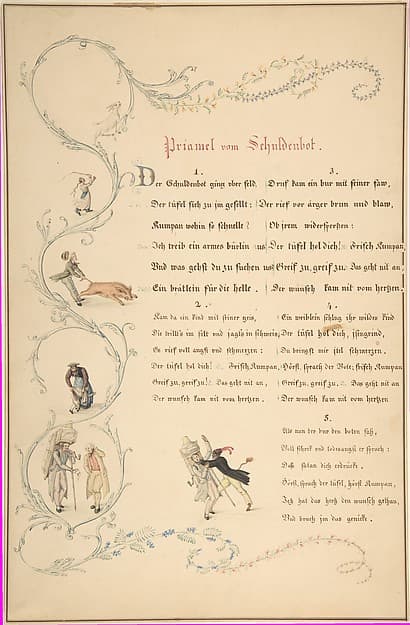 Priamel vom Schuldenbot.
1.
Der Schuldenbot ging vber feld,
Der tüfel sich zu jm gesellt;
Kumpan wohin so schnelle?
Ich treib ein armes bürlin us
Vnd was gehst du zu suchen us
Ein brätlein für die helle.
2.
Kam da ein kind mit siner geis,
Die trillts im felt und jagts in schweis,
Es rief voll angst und schmerzen:
Der tüfel hol dich! Frisch, Kumpan,
Greif zu, greif zu! Das geht nit an,
Der wunsch kam nit vom hertzen.
3.
Druf kam ein bur mit seiner saw,
Der rief vor ärger brun und blaw,
Ob jrem widersperßen:
Der tüfel hol dich! Frisch Kumpan
Greif zu, greif zu. Das geht nit an,
Der wunsch kam nit vom hertzen.
4.
Ein weiblein schlug ihr wildes kind
Der tüfel hol dich,
Du bringst mir jtel schmerzen.
Hörst, sprach der Bote; frisch Kumpan,
Greif zu, greif zu. Das geht nit an
Der wunsch kam nit vom hertzen
5.
Als nun der bur den boten sah,
Voll schreck und er sprach:
Daß satan dich erdrücke.
Hörst, sprach der tüfel, hörst Kumpan,
Der hat das herz den wunsch gethan,
Vnd brach jm das genicke.